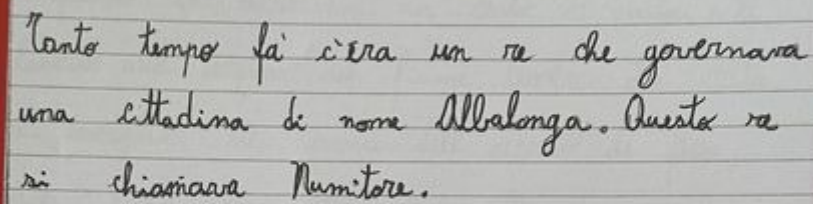 Tanto tempo fa' c'era un re che governava
una cittadina di nome Albalonga. Questo re
si chiamava Numitore.